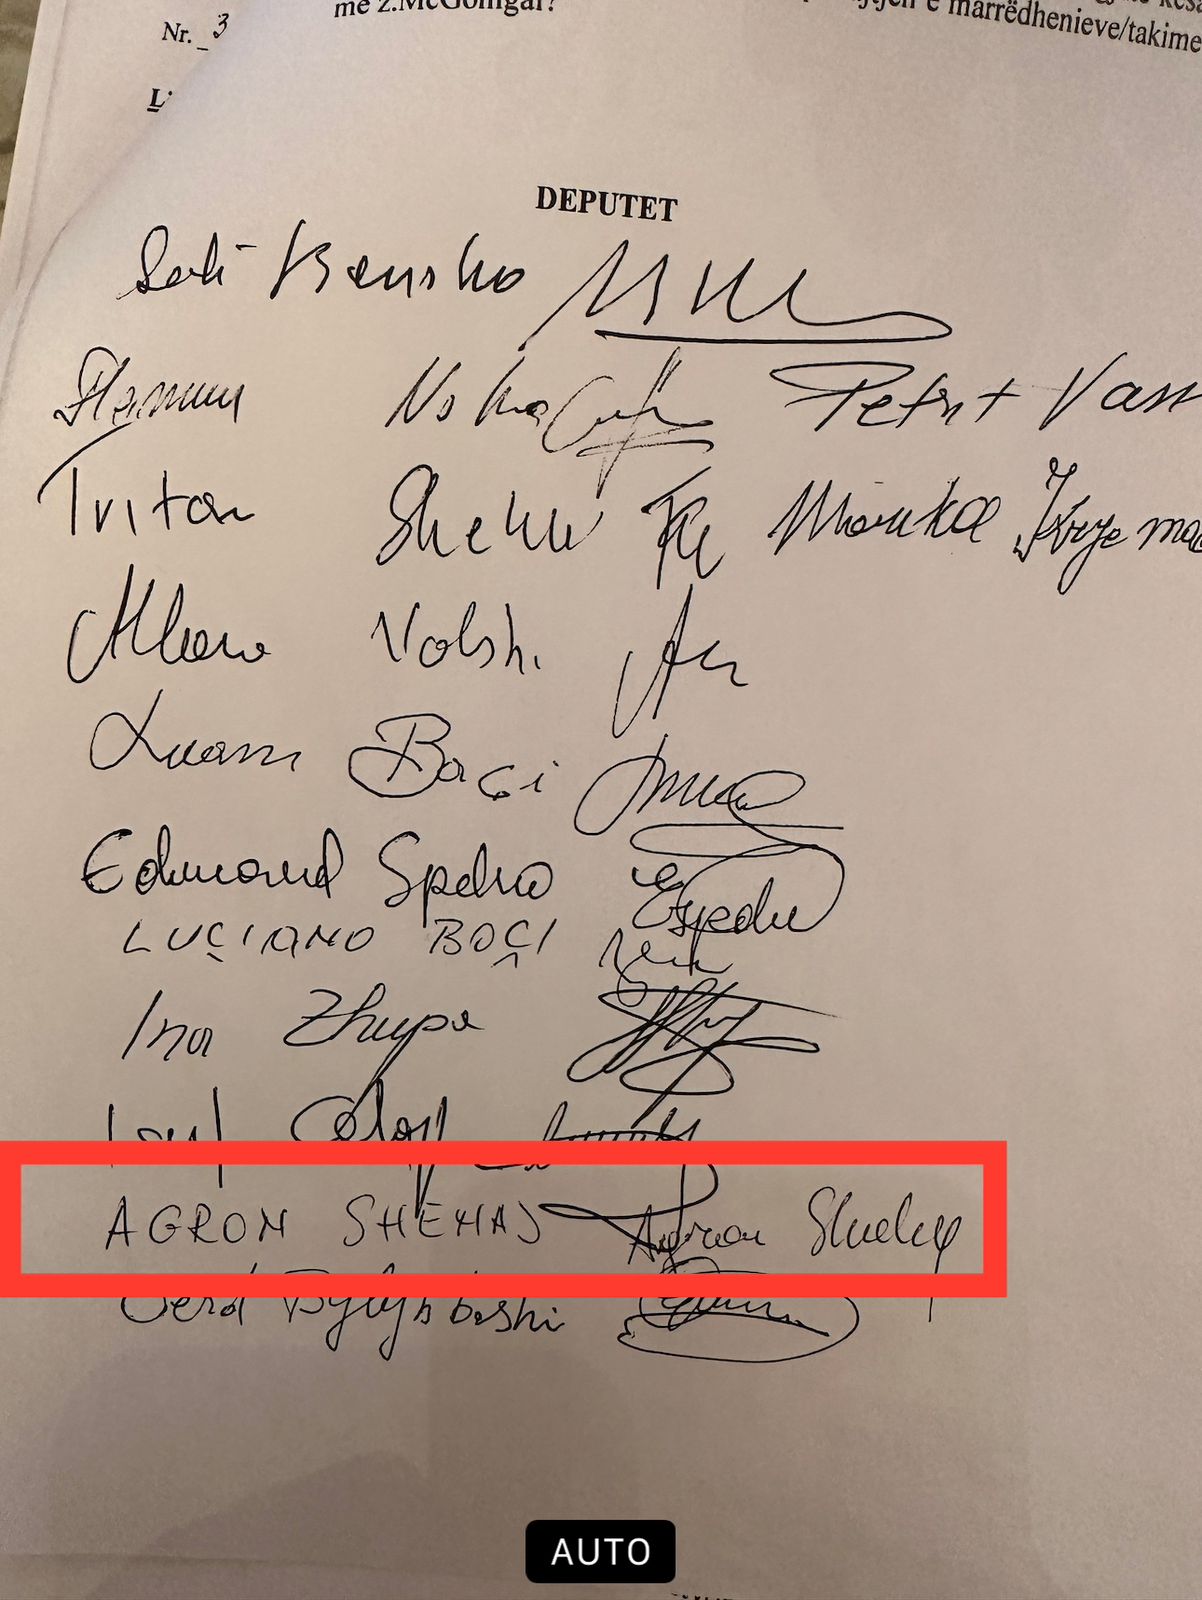 me z.McGonigal?
e marrëdhenieve/takime
Nr._3
DEPUTET
Sali Berisha
Flamur Noka Petrit Vas
Tritan Shehu Marika
Albana Vokshi
Luan Baçi
Edmond Spaho ESpaho
LUÇIANO BOÇI
Ina Zhupa
AGRON SHEHAJ Agron Shehaj
Gerd Bylykbashi
AUTO